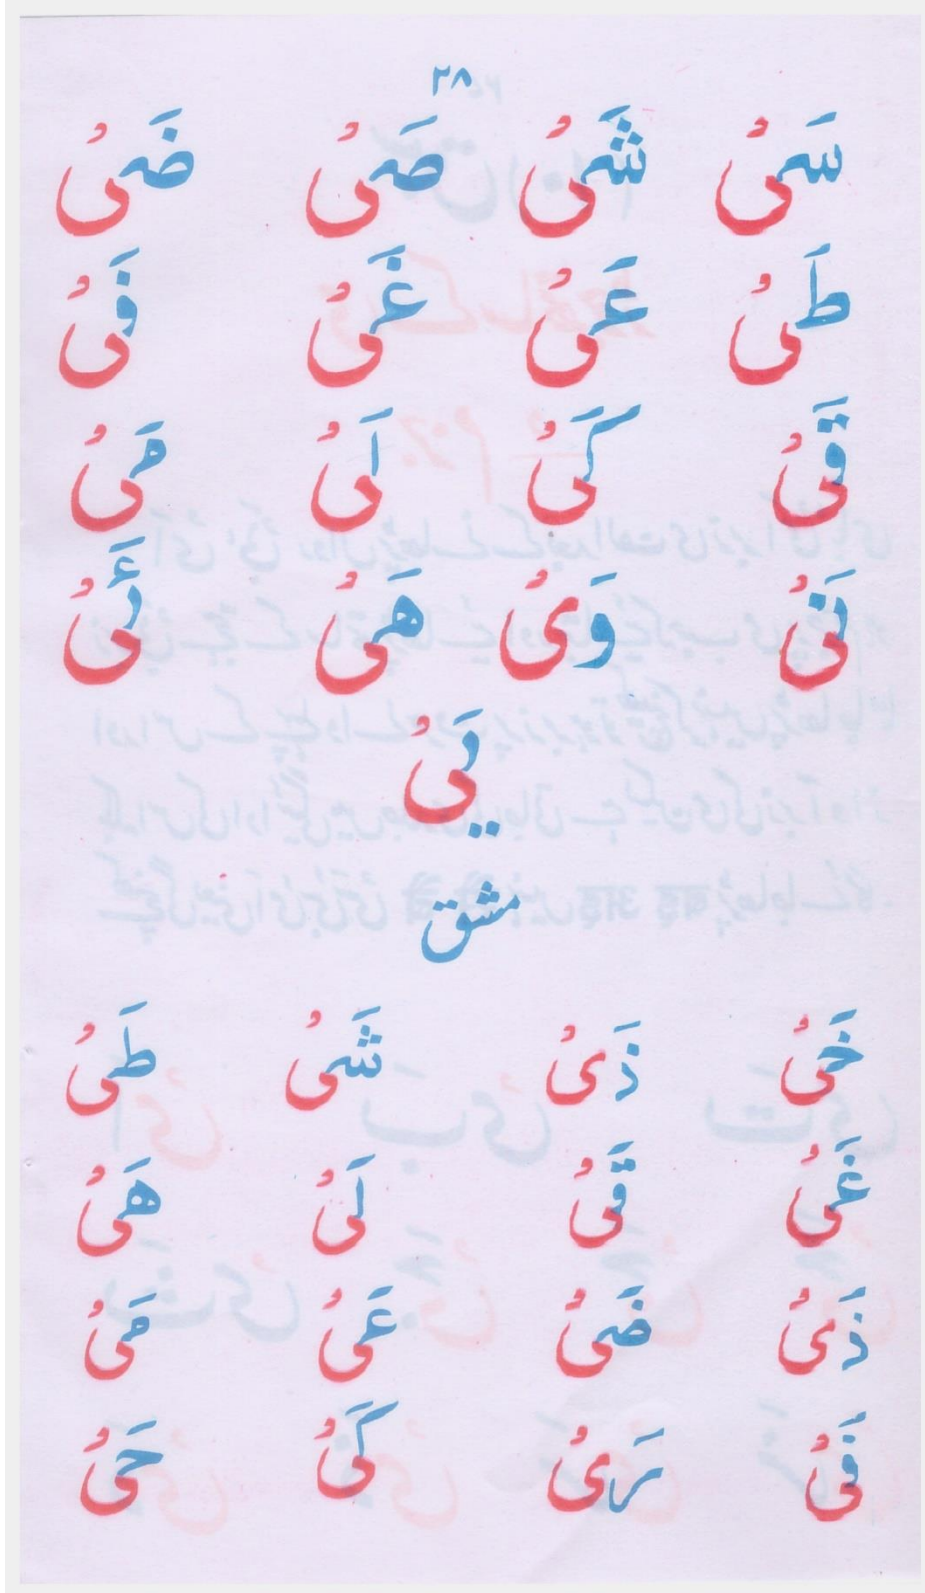 ۲۸
سَیْ شَیْ صَیْ ضَیْ
طَیْ عَیْ غَیْ فَیْ
قَیْ کَیْ لَیْ مَیْ
نَیْ وَیْ هَیْ ئَیْ
یَیْ
مشق
خَیْ ذَیْ شَیْ طَیْ
غَیْ قَیْ لَیْ هَیْ
ذَیْ ضَیْ عَیْ مَیْ
فَیْ رَیْ کَیْ حَیْ